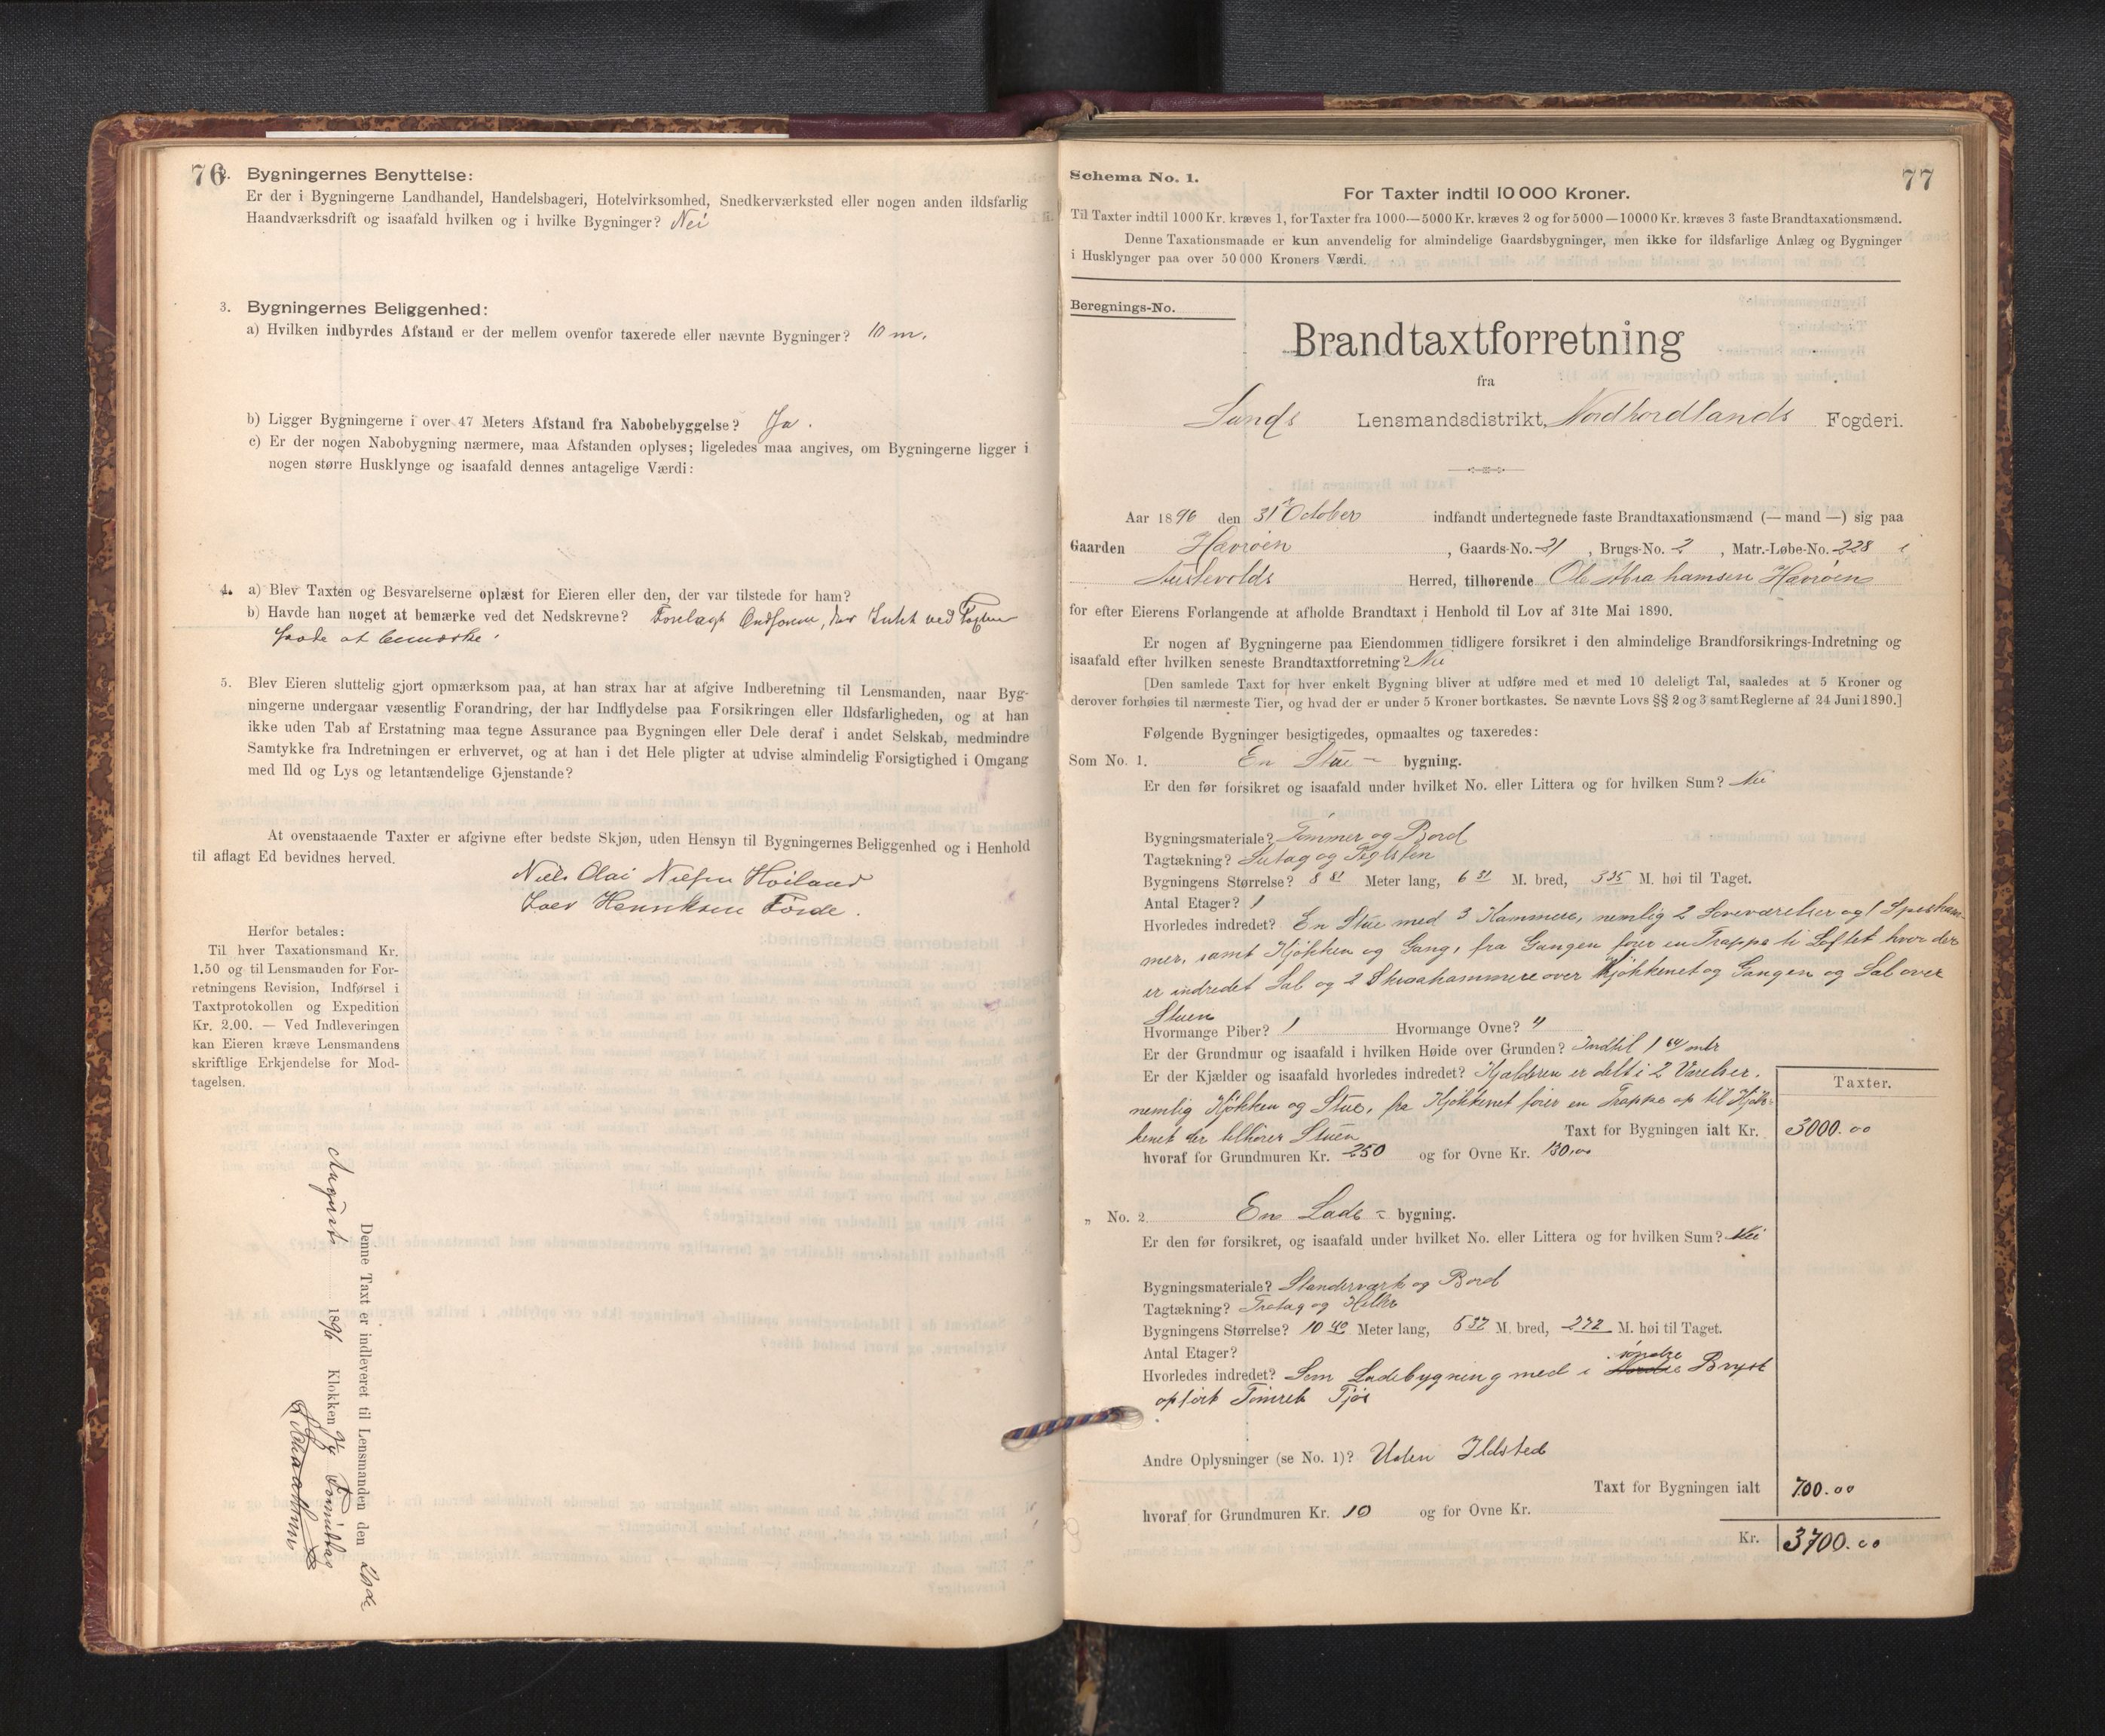 76
2. Bygningernes Benyttelse:
Er der i Bygningerne Landhandel, Handelsbageri, Hotelvirksomhed, Snedkerværksted eller nogen anden ildsfarlig
Haandværksdrift og isaafald hvilken og i hvilke Bygninger? Nei
3. Bygningernes Beliggenhed:
a) Hvilken indbyrdes Afstand er der mellem ovenfor taxerede eller nævnte Bygninger? 10 m.
b) Ligger Bygningerne i over 47 Meters Afstand fra Nabobebyggelse? Ja.
c) Er der nogen Nabobygning nærmere, maa Afstanden oplyses; ligeledes maa angives, om Bygningerne ligger i
nogen større Husklynge og isaafald dennes antagelige Værdi:
4. a) Blev Taxten og Besvarelserne oplæst for Eieren eller den, der var tilstede for ham?
b) Havde han noget at bemærke ved det Nedskrevne? Forelagt der Intet ved Taxten
havde at bemærke.
5. Blev Eieren sluttelig gjort opmærksom paa, at han strax har at afgive Indberetning til Lensmanden, naar Byg-
ningerne undergaar væsentlig Forandring, der har Indflydelse paa Forsikringen eller Ildsfarligheden, og at han
ikke uden Tab af Erstatning maa tegne Assurance paa Bygningen eller Dele deraf i andet Selskab, medmindre
Samtykke fra Indretningen er erhvervet, og at han i det Hele pligter at udvise almindelig Forsigtighed i Omgang
med Ild og Lys og letantændelige Gjenstande?
At ovenstaaende Taxter er afgivne efter bedste Skjøn, uden Hensyn til Bygningernes Beliggenhed og i Henhold
til aflagt Ed bevidnes herved.
Niels Olai Nielsen Høiland
Henriksen Førde.
Herfor betales:
Til hver Taxationsmand Kr.
1.50 og til Lensmanden for For-
retningens Revision, Indførsel i
Taxtprotokollen og Expedition
Kr. 2.00. — Ved Indleveringen
kan Eieren kræve Lensmandens
skriftlige Erkjendelse for Mod-
tagelsen.
Denne Taxt er indleveret til Lensmanden den
August 1896 Klokken 9 1/4 Formiddag
77
Schema No. 1.
For Taxter indtil 10 000 Kroner.
Til Taxter indtil 1000 Kr. kræves 1, for Taxter fra 1000—5000 Kr. kræves 2 og for 5000—10000 Kr. kræves 3 faste Brandtaxationsmænd.
Denne Taxationsmaade er kun anvendelig for almindelige Gaardsbygninger, men ikke for ildsfarlige Anlæg og Bygninger
i Husklynger paa over 50 000 Kroners Værdi.
Beregnings-No.
Brandtaxtforretning
fra
Sunds Lensmandsdistrikt, Nordhordlands Fogderi.
Aar 1896 den 31 October indfandt undertegnede faste Brandtaxationsmænd (— mand —) sig paa
Gaarden Havrøen, Gaards-No. 21, Brugs-No. 2, Matr.-Løbe-No. 228 i
Austevolds Herred, tilhørende Ole Abrahamsen Havrøen
for efter Eierens Forlangende at afholde Brandtaxt i Henhold til Lov af 31te Mai 1890.
Er nogen af Bygningerne paa Eiendommen tidligere forsikret i den almindelige Brandforsikrings-Indretning og
isaafald efter hvilken seneste Brandtaxtforretning? Nei
[Den samlede Taxt for hver enkelt Bygning bliver at udføre med et med 10 deleligt Tal, saaledes at 5 Kroner og
derover forhøies til nærmeste Tier, og hvad der er under 5 Kroner bortkastes. Se nævnte Lovs §§ 2 og 3 samt Reglerne af 24 Juni 1890.]
Følgende Bygninger besigtigedes, opmaaltes og taxeredes:
Som No. 1. En Stue- bygning.
Er den før forsikret og isaafald under hvilket No. eller Littera og for hvilken Sum? Nei
Bygningsmateriale? Tømmer og Bord
Tagtækning? Sutag og Teglsten
Bygningens Størrelse? 8 81 Meter lang, 6 51 M. bred, 3 35 M. høi til Taget.
Antal Etager? 1
Hvorledes indredet? En Stue med 3 Kammere, nemlig 2 Soveværelser og 1 Spiskam-
mer, samt Kjøkken og Gang, fra Gangen fører en Trappe til Loftet hvor der
er indredet Sal og 2 Skraakammere over Kjøkkenet og Gangen og Sal over
Stuen
Hvormange Piber? 1 Hvormange Ovne? 4
Er der Grundmur og isaafald i hvilken Høide over Grunden? Indtil 1 64 meter
Er der Kjælder og isaafald hvorledes indredet? Kjælderen er delt i 2 Værelser.
nemlig Kjøkken og Stue, fra Kjøkkenet fører en Trappe op til Kjøk-
kenet der tilhører Stuen
Taxter.
Taxt for Bygningen ialt Kr. 3000.00
hvoraf for Grundmuren Kr. 250 og for Ovne Kr. 130,00
„ No. 2. En Lade- bygning.
Er den før forsikret, og isaafald under hvilket No. eller Littera og for hvilken Sum? Nei
Bygningsmateriale? Standerværk og Bord
Tagtækning? Trætag og Heller
Bygningens Størrelse? 10 40 Meter lang, 6 37 M. bred, 2 72 M. høi til Taget.
Antal Etager?
Hvorledes indredet? Som Ladebygning med i søndre Bryst
opført Tømret Fjøs
Andre Oplysninger (se No. 1)? Uden Ildsted
Taxt for Bygningen ialt 700.00
hvoraf for Grundmuren Kr. 10 og for Ovne Kr.
Kr. 3700.00